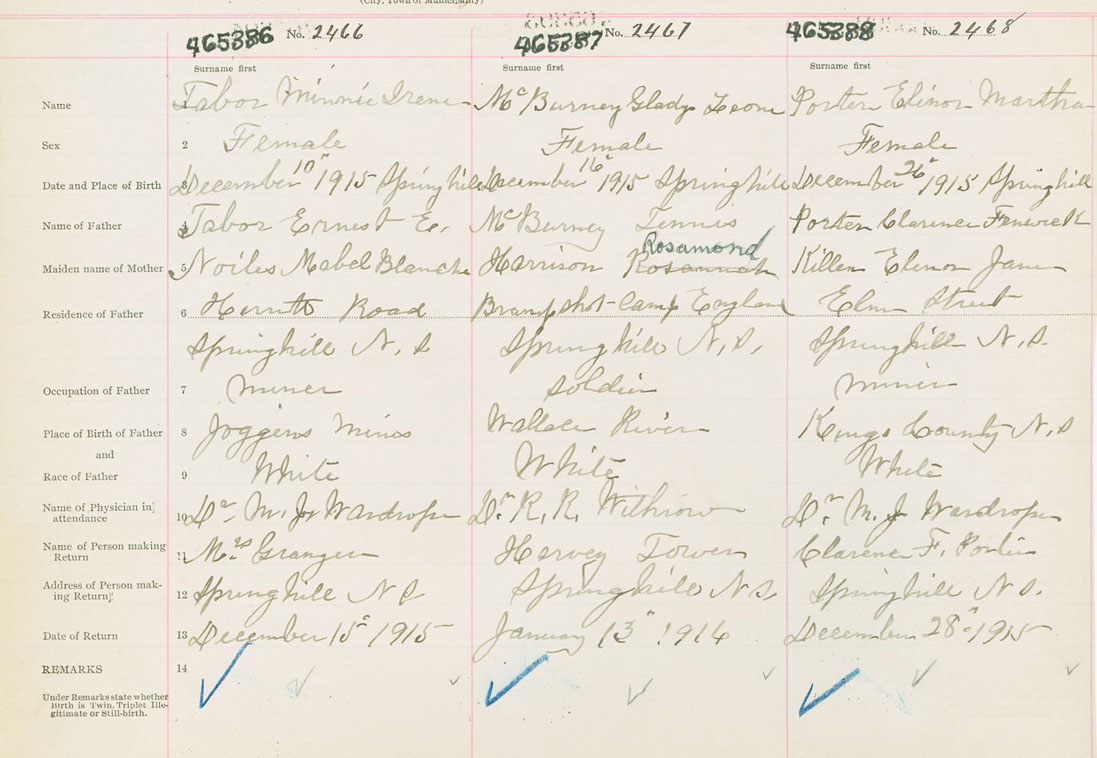 (City, Town or Municipality)
465386 No. 2466 465387 No. 2467 465388 No. 2468
Surname first Surname first Surname first
Name Tabor Minnie Irene McBurney Gladys Leone Porter Elinor Martha
Sex 2 Female Female Female
Date and Place of Birth 3 December 10" 1915 Springhill December 16" 1915 Springhill December 26" 1915 Springhill
Name of Father 4 Tabor Ernest E. McBurney Tennis Porter Clarence Fenwick
Rosamond
Maiden name of Mother 5 Noiles Mabel Blanche Harrison Rosannah Killen Elenor Jane
Residence of Father 6 Herrett Road Bramshot Camp England Elm Street
Springhill N.S Springhill N.S. Springhill N.S.
Occupation of Father 7 Miner Soldier Miner
Place of Birth of Father 8 Joggins Mines Wallace River Kings County N.S
and
Race of Father 9 White White White
Name of Physician in attendance 10 Dr. M. J. Wardrope Dr. R. R. Withrow Dr. M. J. Wardrope
Name of Person making Return 11 Mrs Granger Hervey Tower Clarence F. Porter
Address of Person making Return 12 Springhill N S Springhill N S Springhill N S.
Date of Return 13 December 15" 1915 January 13" 1916 December 28" 1915
REMARKS 14
Under Remarks state whether
Birth is Twin, Triplet Ille-
gitimate or Still-birth.